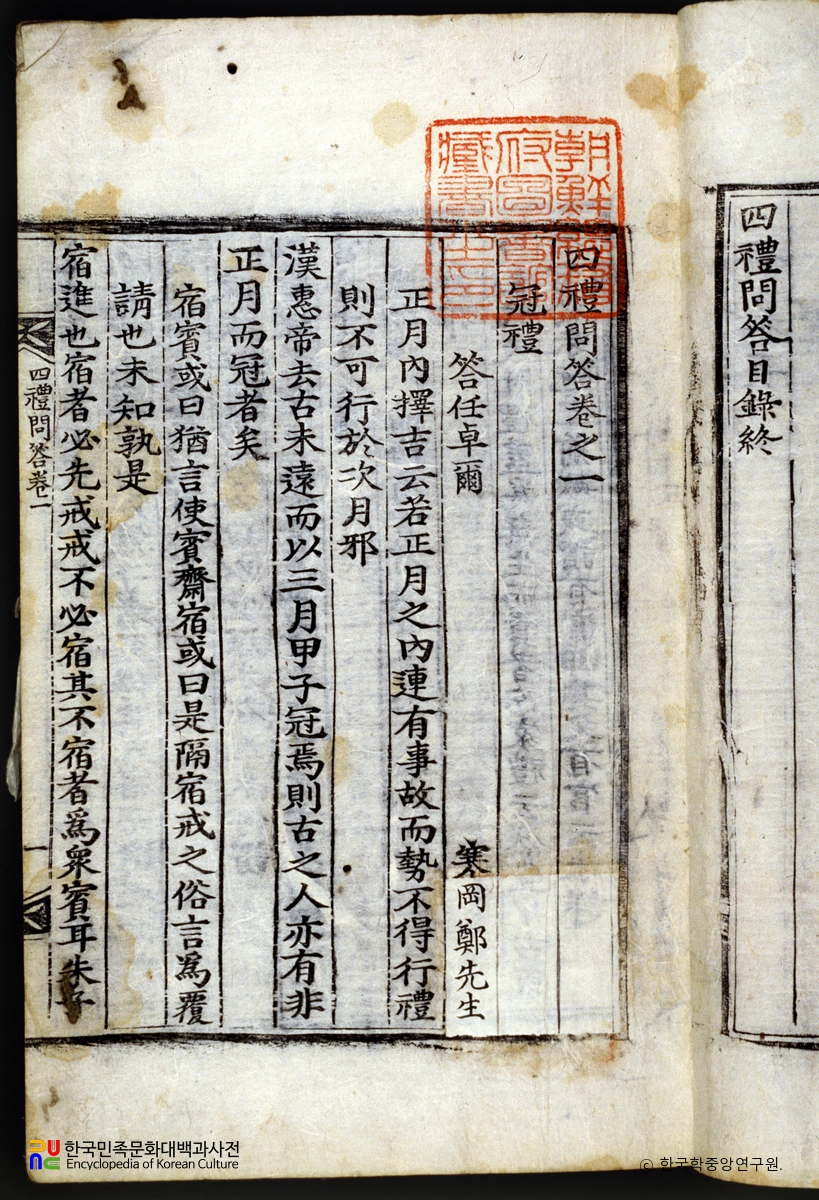 四禮問答目錄終
朝鮮總督
府圖書館
藏書之印
四禮問答卷之一
冠禮
答任卓爾 寒岡鄭先生
正月內擇吉云若正月之內連有事故而勢不得行禮
則不可行於次月邪
漢惠帝去古未遠而以三月甲子冠焉則古之人亦有非
正月而冠者矣
宿賓或曰猶言使賓齋宿或曰是隔宿戒之俗言爲覆
請也未知孰是
宿進也宿者必先戒戒不必宿其不宿者爲衆賓耳朱子
四禮問答卷一 一
한국민족문화대백과사전
Encyclopedia of Korean Culture
© 한국학중앙연구원.